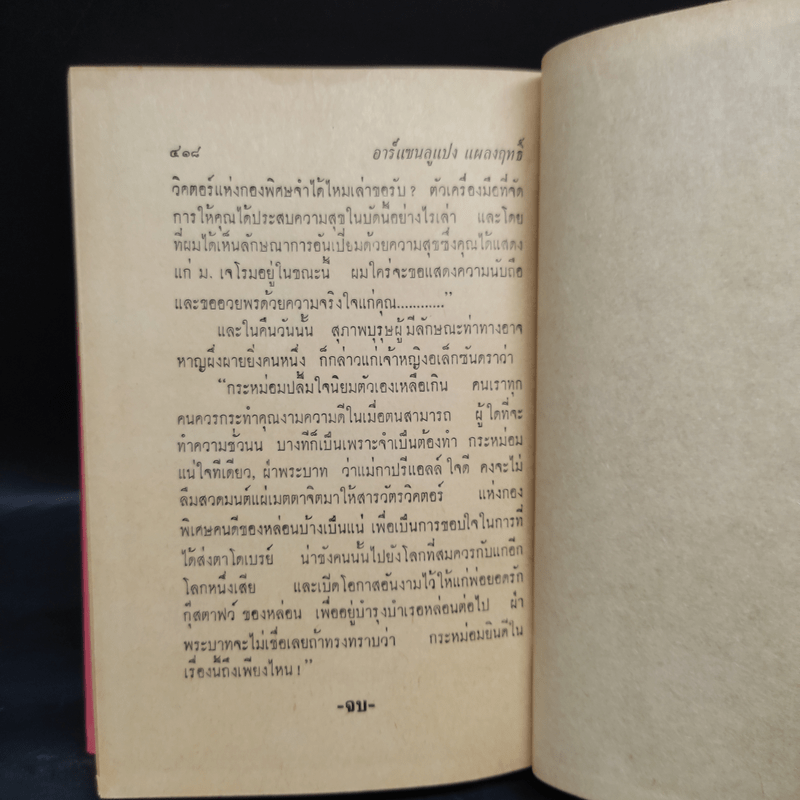 ๔๑๘ อาร์แซนลูแปง แผลงฤทธิ์
วิคตอร์แห่งกองพิศษจำได้ไหมเล่าขอรับ? ตัวเครื่องมือที่จัด
การให้คุณได้ประสบความสุขในบัดนี้อย่างไรเล่า และโดย
ที่ผมได้เห็นลักษณาการอันเปี่ยมด้วยความสุขซึ่งคุณได้แสดง
แก่ ม. เจโรมอยู่ในขณะนี้ ผมใคร่จะขอแสดงความนับถือ
และขออวยพรด้วยความจริงใจแก่คุณ............”
และในคืนวันนั้น สุภาพบุรุษผู้มีลักษณะท่าทางอาจ
หาญผึ่งผายยิ่งคนหนึ่ง ก็กล่าวแก่เจ้าหญิงอเล็กซันดราว่า
“กระหม่อมปลื้มใจนิยมตัวเองเหลือเกิน คนเราทุก
คนควรกระทำคุณงามความดีในเมื่อตนสามารถ ผู้ใดที่จะ
ทำความชั่วนน บางทีก็เป็นเพราะจำเป็นต้องทำ กระหม่อม
แน่ใจทีเดียว, ฝ่าพระบาท ว่าแม่กาปรีแอลล์ ใจดี คงจะไม่
ลืมสวดมนต์แผ่เมตตาจิตมาให้สารวัตรวิคตอร์ แห่งกอง
พิเศษคนดีของหล่อนบ้างเป็นแน่ เพื่อเป็นการขอบใจในการที่
ได้ส่งตาโดเบรย์ น่าชังคนนั้นไปยังโลกที่สมควรกับแกอีก
โลกหนึ่งเสีย และเปิดโอกาสอันงามไว้ให้แก่พ่อยอดรัก
กุสตาฟว์ ของหล่อน เพื่ออยู่บำรุงบำเรอหล่อนต่อไป ฝ่า
พระบาทจะไม่เชื่อเลยถ้าทรงทราบว่า กระหม่อมยินดีใน
เรื่องนี้ถึงเพียงไหน!”
-จบ-